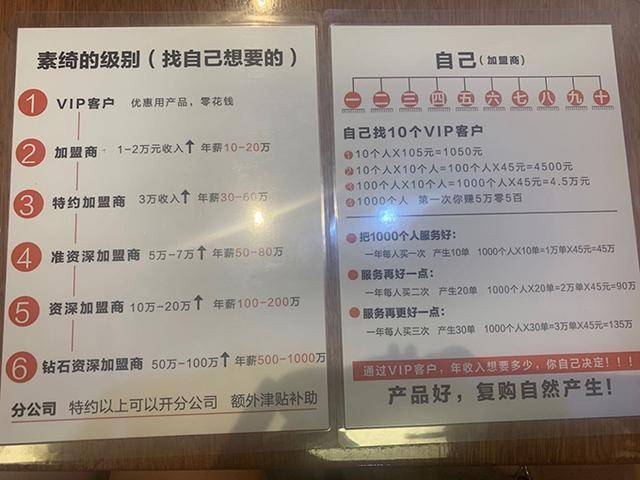 素绮的级别（找自己想要的）
1 VIP客户 优惠用产品，零花钱
2 加盟商 1-2万元收入↑ 年薪10-20万
3 特约加盟商 3万收入↑ 年薪30-60万
4 准资深加盟商 5万-7万↑ 年薪50-80万
5 资深加盟商 10万-20万↑ 年薪100-200万
6 钻石资深加盟商 50万-100万↑ 年薪500-1000万
分公司 特约以上可以开分公司 额外津贴补助
自己（加盟商）
一 二 三 四 五 六 七 八 九 十
自己找10个VIP客户
1 10个人X105元=1050元
2 10个人X10个人=100个人X45元=4500元
3 100个人X10个人=1000个人X45元=4.5万元
4 1000个人 第一次你赚5万零5百
把1000个人服务好：
一年每人买一次 产生10单 1000个人X10单=1万单X45元=45万
服务再好一点：
一年每人买二次 产生20单 1000个人X20单=2万单X45元=90万
服务再更好一点：
一年每人买三次 产生30单 1000个人X30单=3万单X45元=135万
通过VIP客户，年收入想要多少，你自己决定！！！
产品好，复购自然产生！